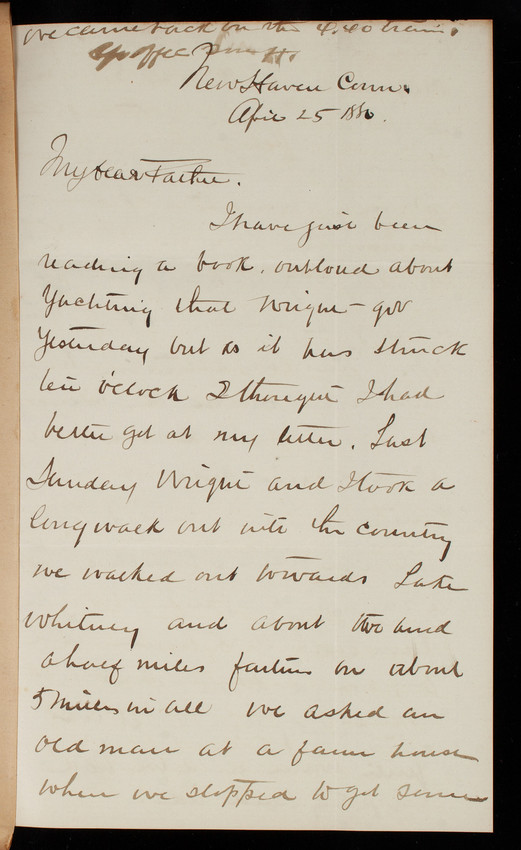 we came back on the 4.40 train.
New Haven Conn.
April 25 1880.
My dear Father.
I have just been
reading a book, outloud about
Yachting that Wright got
Yesterday but as it has struck
ten o'clock I thought I had
better get at my letter. Last
Sunday Wright and I took a
long walk out into the country
we walked out towards Lake
Whitney and about two and
a half miles farther on about
5 miles in all we asked an
old man at a farm house
where we stopped to get some